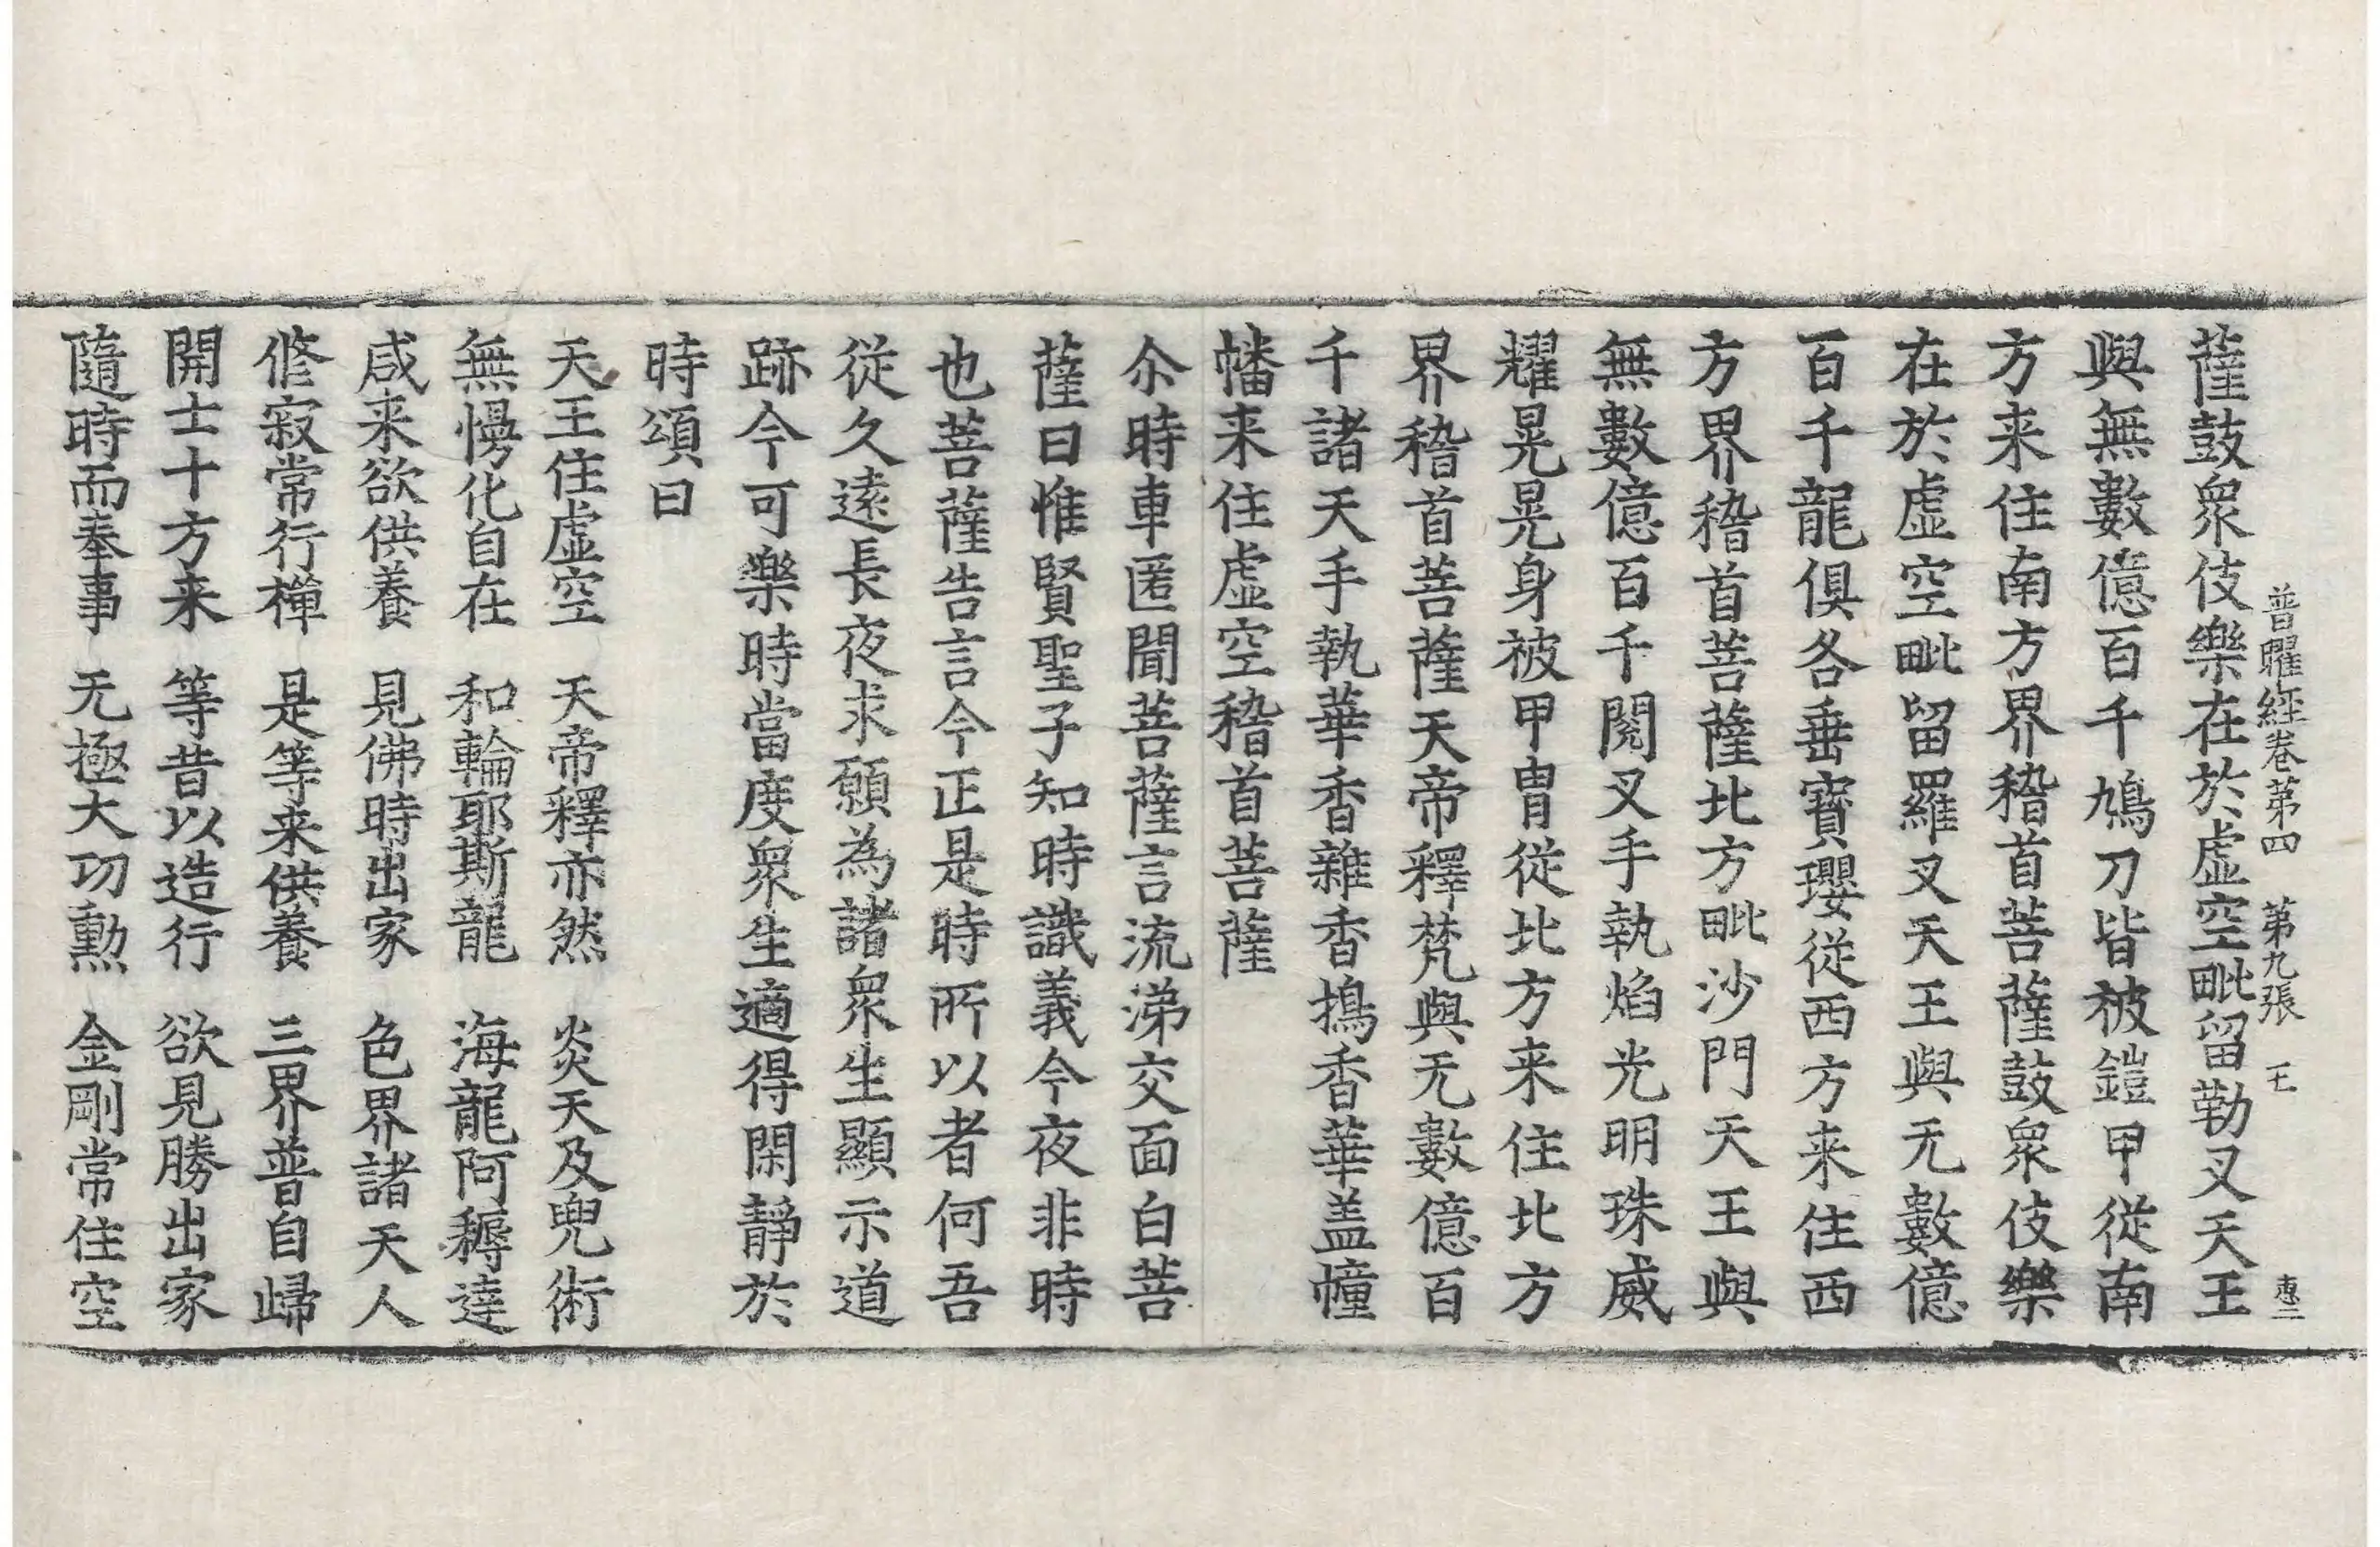 薩鼓衆伎樂在於虛空毗留勒叉天王
普曜經卷第四 第九張 王 惠二
與無數億百千鳩刀皆被鎧甲從南
方来住南方界稽首菩薩鼓衆伎樂
在於虛空毗留羅叉天王與无數億
百千龍俱各垂寶瓔從西方来住西
方界稽首菩薩北方毗沙門天王與
無數億百千閱叉手執焰光明珠威
耀晃晃身被甲冑從北方来住北方
界稽首菩薩天帝釋梵與无數億百
千諸天手執華香雜香擣香華盖幢
幡来住虛空稽首菩薩
尒時車匿聞菩薩言流涕交面白菩
薩曰惟賢聖子知時識義今夜非時
也菩薩告言今正是時所以者何吾
從久遠長夜求願為諸衆生顯示道
跡今可樂時當度衆生適得閑靜於
時頌曰
天王住虛空 天帝釋亦然 炎天及兜術
無憍化自在 和輪耶斯龍 海龍阿耨達
咸来欲供養 見佛時出家 色界諸天人
修寂常行禪 是等来供養 三界普自歸
開士十方来 等昔以造行 欲見勝出家
隨時而奉事 无極大功勳 金剛常住空